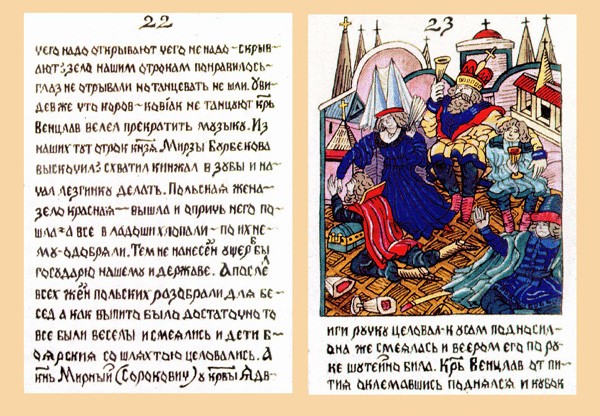 22
чего надо открывают чего не надо-скрыв-
ают: зело нашим отрокам понравилось-
глаз не отрывали но танцевать не шли. Уви-
дев же что коров-ковгак не танцуют крль
Венцлав велел прекратить музыку. Из
наших тут отрок кнзя. Мирзы Бурбекова
выскочил: схватил кинжал в зубы и на-
чал лезгинку делать. Польская жена-
зело красная-вышла и опричь него по-
шла: а все в ладоши хлопали-по их не-
му-одобряли. Тем не нанесён ущерб бы
государю нашему и державе. А после
всех жён польских разобрали для бе-
сед а как выпито было достаточно то
все были веселы и смеялись и дети б-
оярския со шляхтою целовались. А
кнь Мирный (Сорокович) у крвы Ядв-
23
иги ручку целовал-к усам подносил-
она же смеялась и веером его по ру-
ке шутейно била. Крль Венцлав от пи-
тия оклемавшись поднялся и кубок